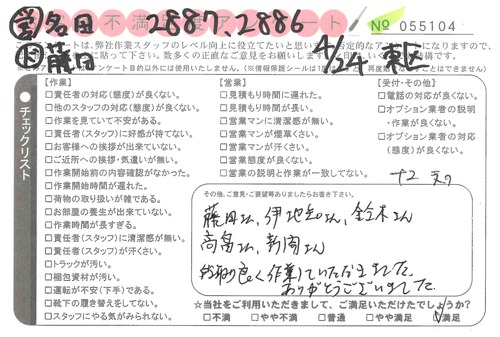 営 名田 2887、2886
不満 度アンケート
No 055104
作 藤田 4/24 東区
チェックリスト
【作業】
□責任者の対応(態度)が良くない。
□他のスタッフの対応(態度)が良くない。
□作業を見ていて不安がある。
□責任者(スタッフ)に好感が持てない。
□お客様への挨拶が出来ていない。
□ご近所への挨拶・気遣いが無い。
□作業開始前の内容確認がなかった。
□作業開始時間が遅れた。
□荷物の取り扱いが雑である。
□お部屋の養生が出来ていない。
□作業時間が長すぎる。
□責任者(スタッフ)に清潔感が無い。
□責任者(スタッフ)が汗くさい。
□トラックが汚い。
□梱包資材が汚い。
□運転が不安(下手)である。
□靴下の履き替えをしてない。
□スタッフにやる気がみられない。
【営業】
□見積もり時間に遅れた。
□見積もり時間が長い。
□営業マンに清潔感が無い。
□営業マンが煙草くさい。
□営業マンが汗くさい。
□営業態度が良くない。
□営業の説明と作業が一致してない。
【受付・その他】
□電話の対応が良くない。
□オプション業者の説明
・作業が良くない。
□オプション業者の対応
(態度)が良くない。
その他、ご意見・ご要望等ありましたらお書き下さい。
藤田さん、伊地知さん、鈴木さん
高畠さん、新岡さん
気持ち良く作業していただきました。
ありがとうございました。
☆当社をご利用いただきまして、ご満足いただけたでしょうか?
□不満 □やや不満 □普通 □やや満足 □満足